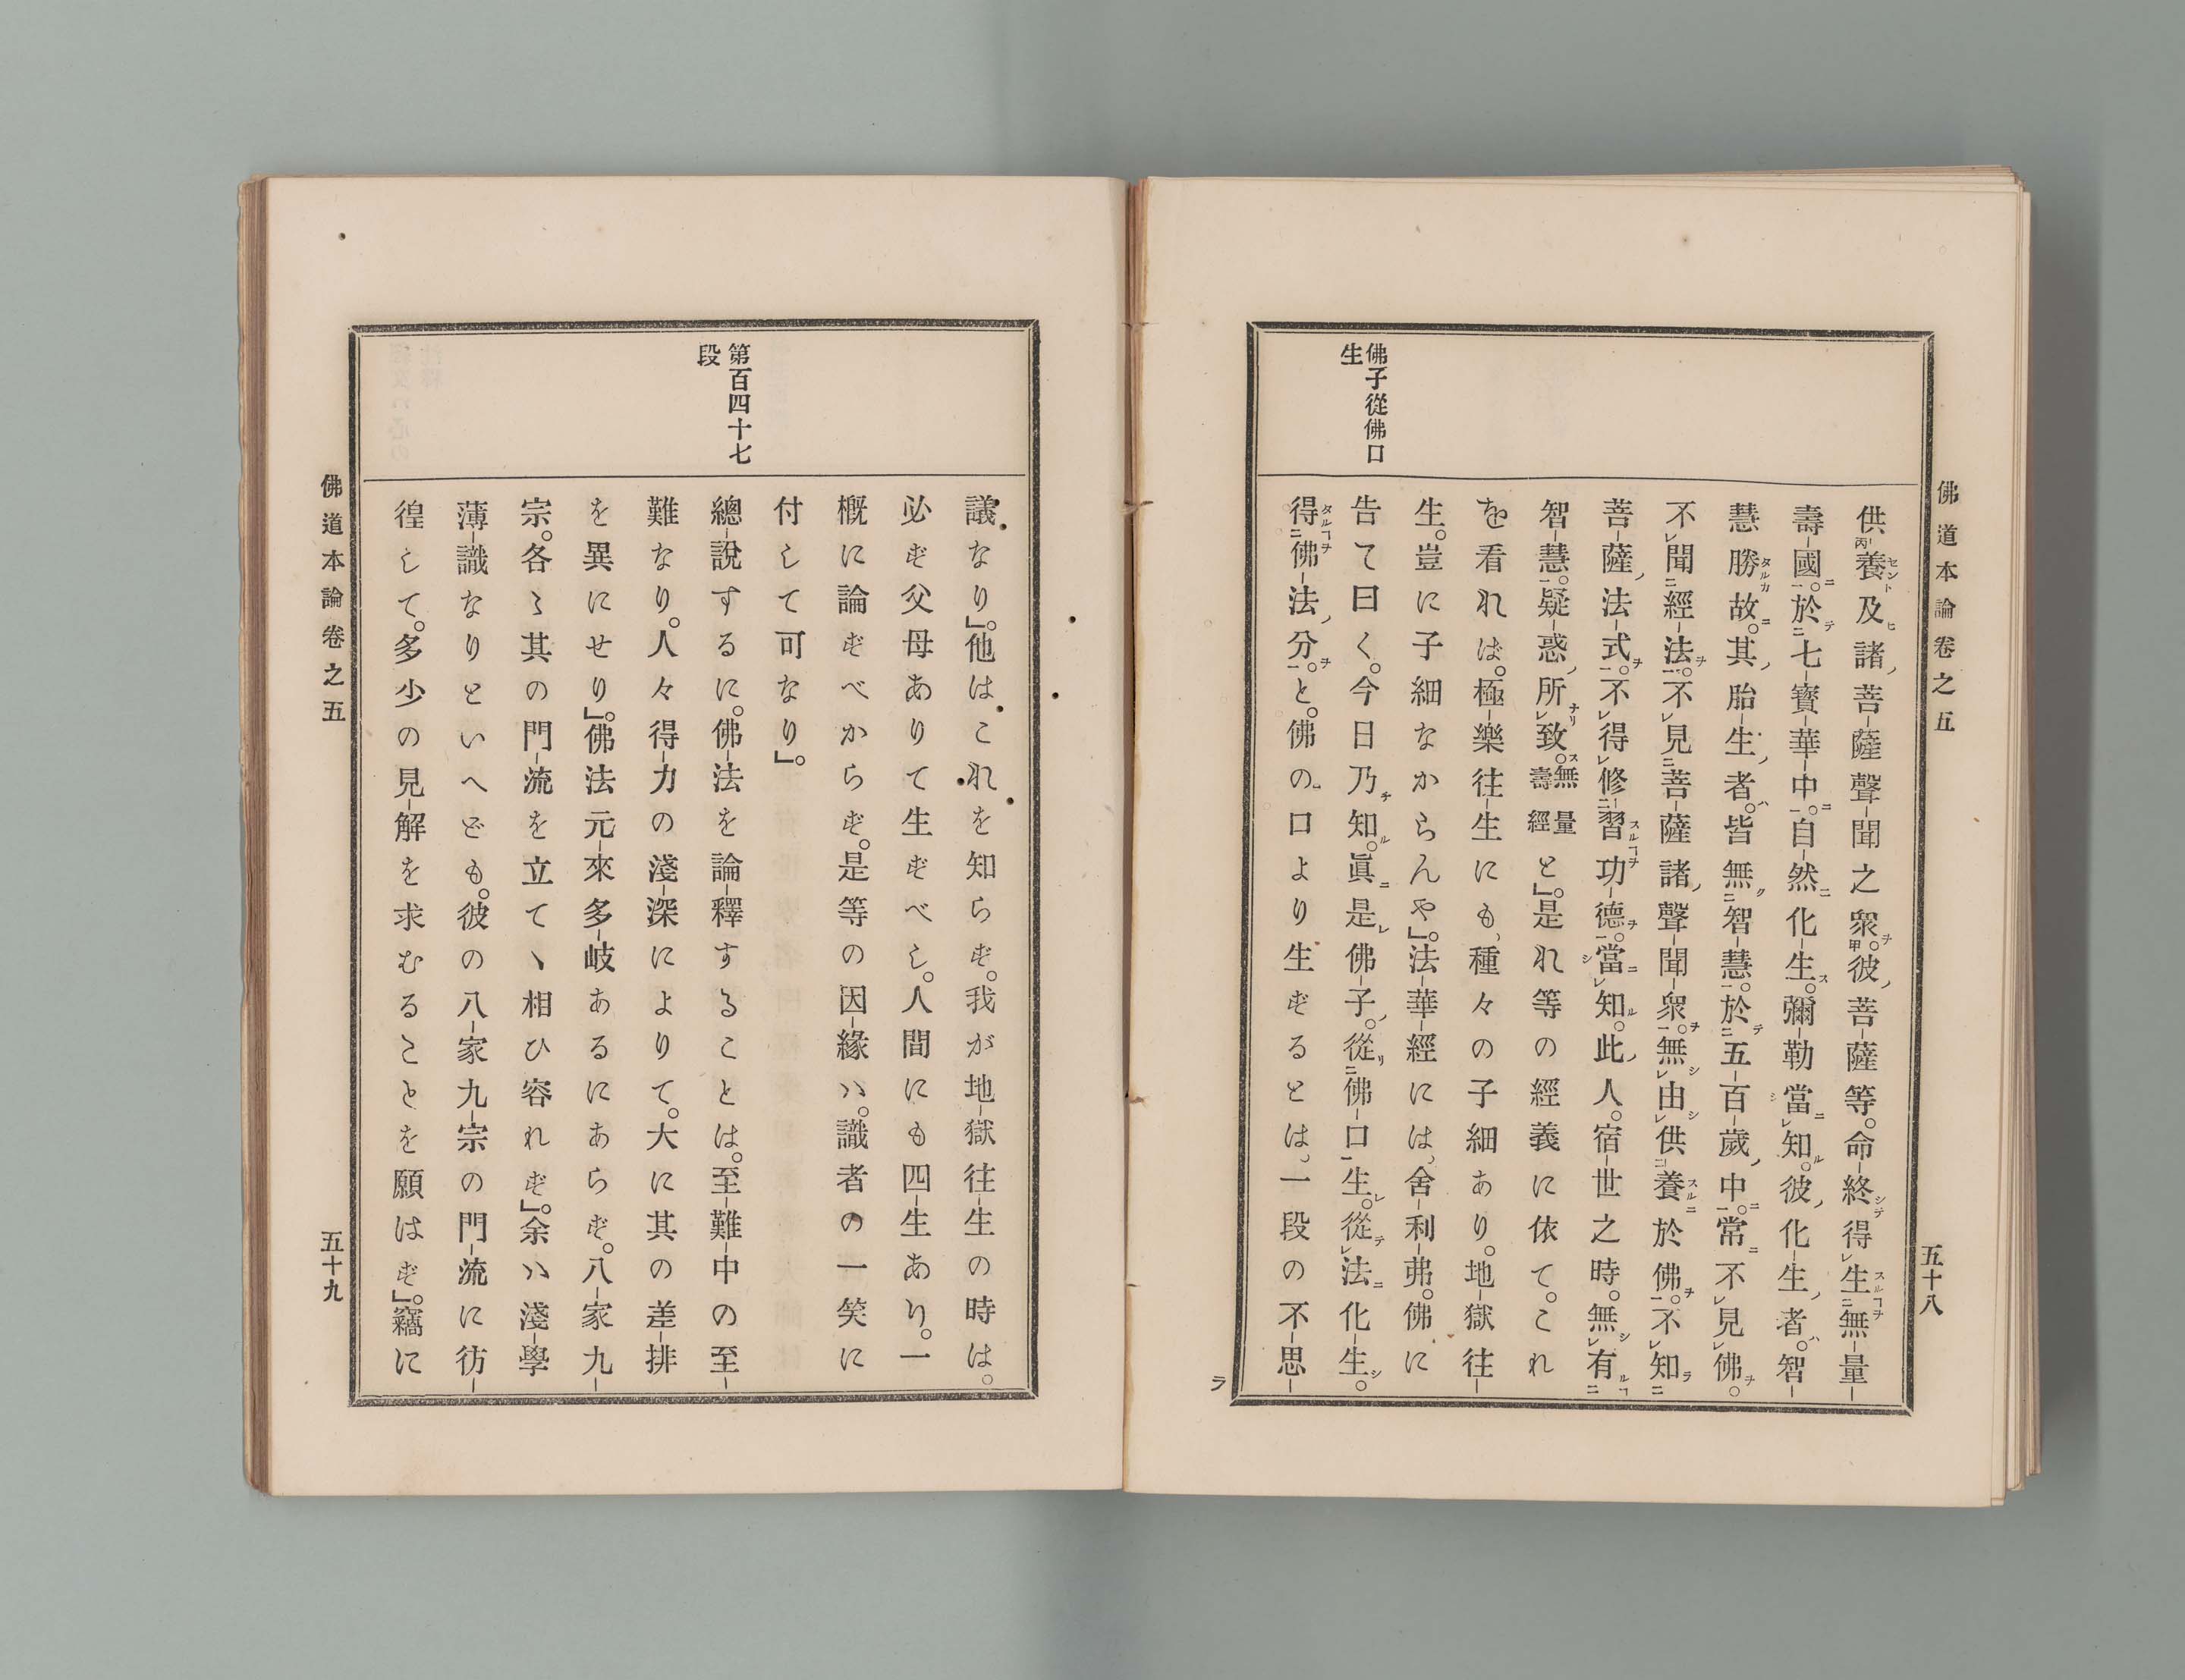 佛道本論卷之五
五十八
佛子從佛口
生
供養及諸菩薩聲聞之衆。彼菩薩等。命終得生無量
壽國。於七寶華中。自然化生。彌勒當知。彼化生者。智
慧勝故。其胎生者。皆無智慧。於五百歲中。常不見佛。
不聞經法。不見菩薩諸聲聞衆。無由供養於佛。不知
菩薩法式。不得修習功德。當知。此人。宿世之時。無有
智慧。疑惑所致。無量壽經と」。是れ等の經義に依て。これ
を看れば。極樂往生にも、種々の子細あり。地獄往
生。豈に子細なからんや」。法華經には、舍利弗。佛に
告て曰く。今日乃知。眞是佛子。從佛口生。從法化生。
得佛法分。と。佛の口より生ずるとは、一段の不思
ラ
第百四十七
段
議なり」。他はこれを知らず。我が地獄往生の時は。
必ず父母ありて生ずべし。人間にも四生あり。一
概に論ずべからず。是等の因緣ハ。識者の一笑に
付して可なり」。
總說するに。佛法を論釋することは。至難中の至
難なり。人々得力の淺深によりて。大に其の差排
を異にせり」。佛法元來多岐あるにあらず。八家九
宗。各〻其の門流を立てヽ相ひ容れず」。余ハ淺學
薄識なりといへども。彼の八家九宗の門流に彷
徨して。多少の見解を求むることを願はず」。竊に
佛道本論卷之五
五十九